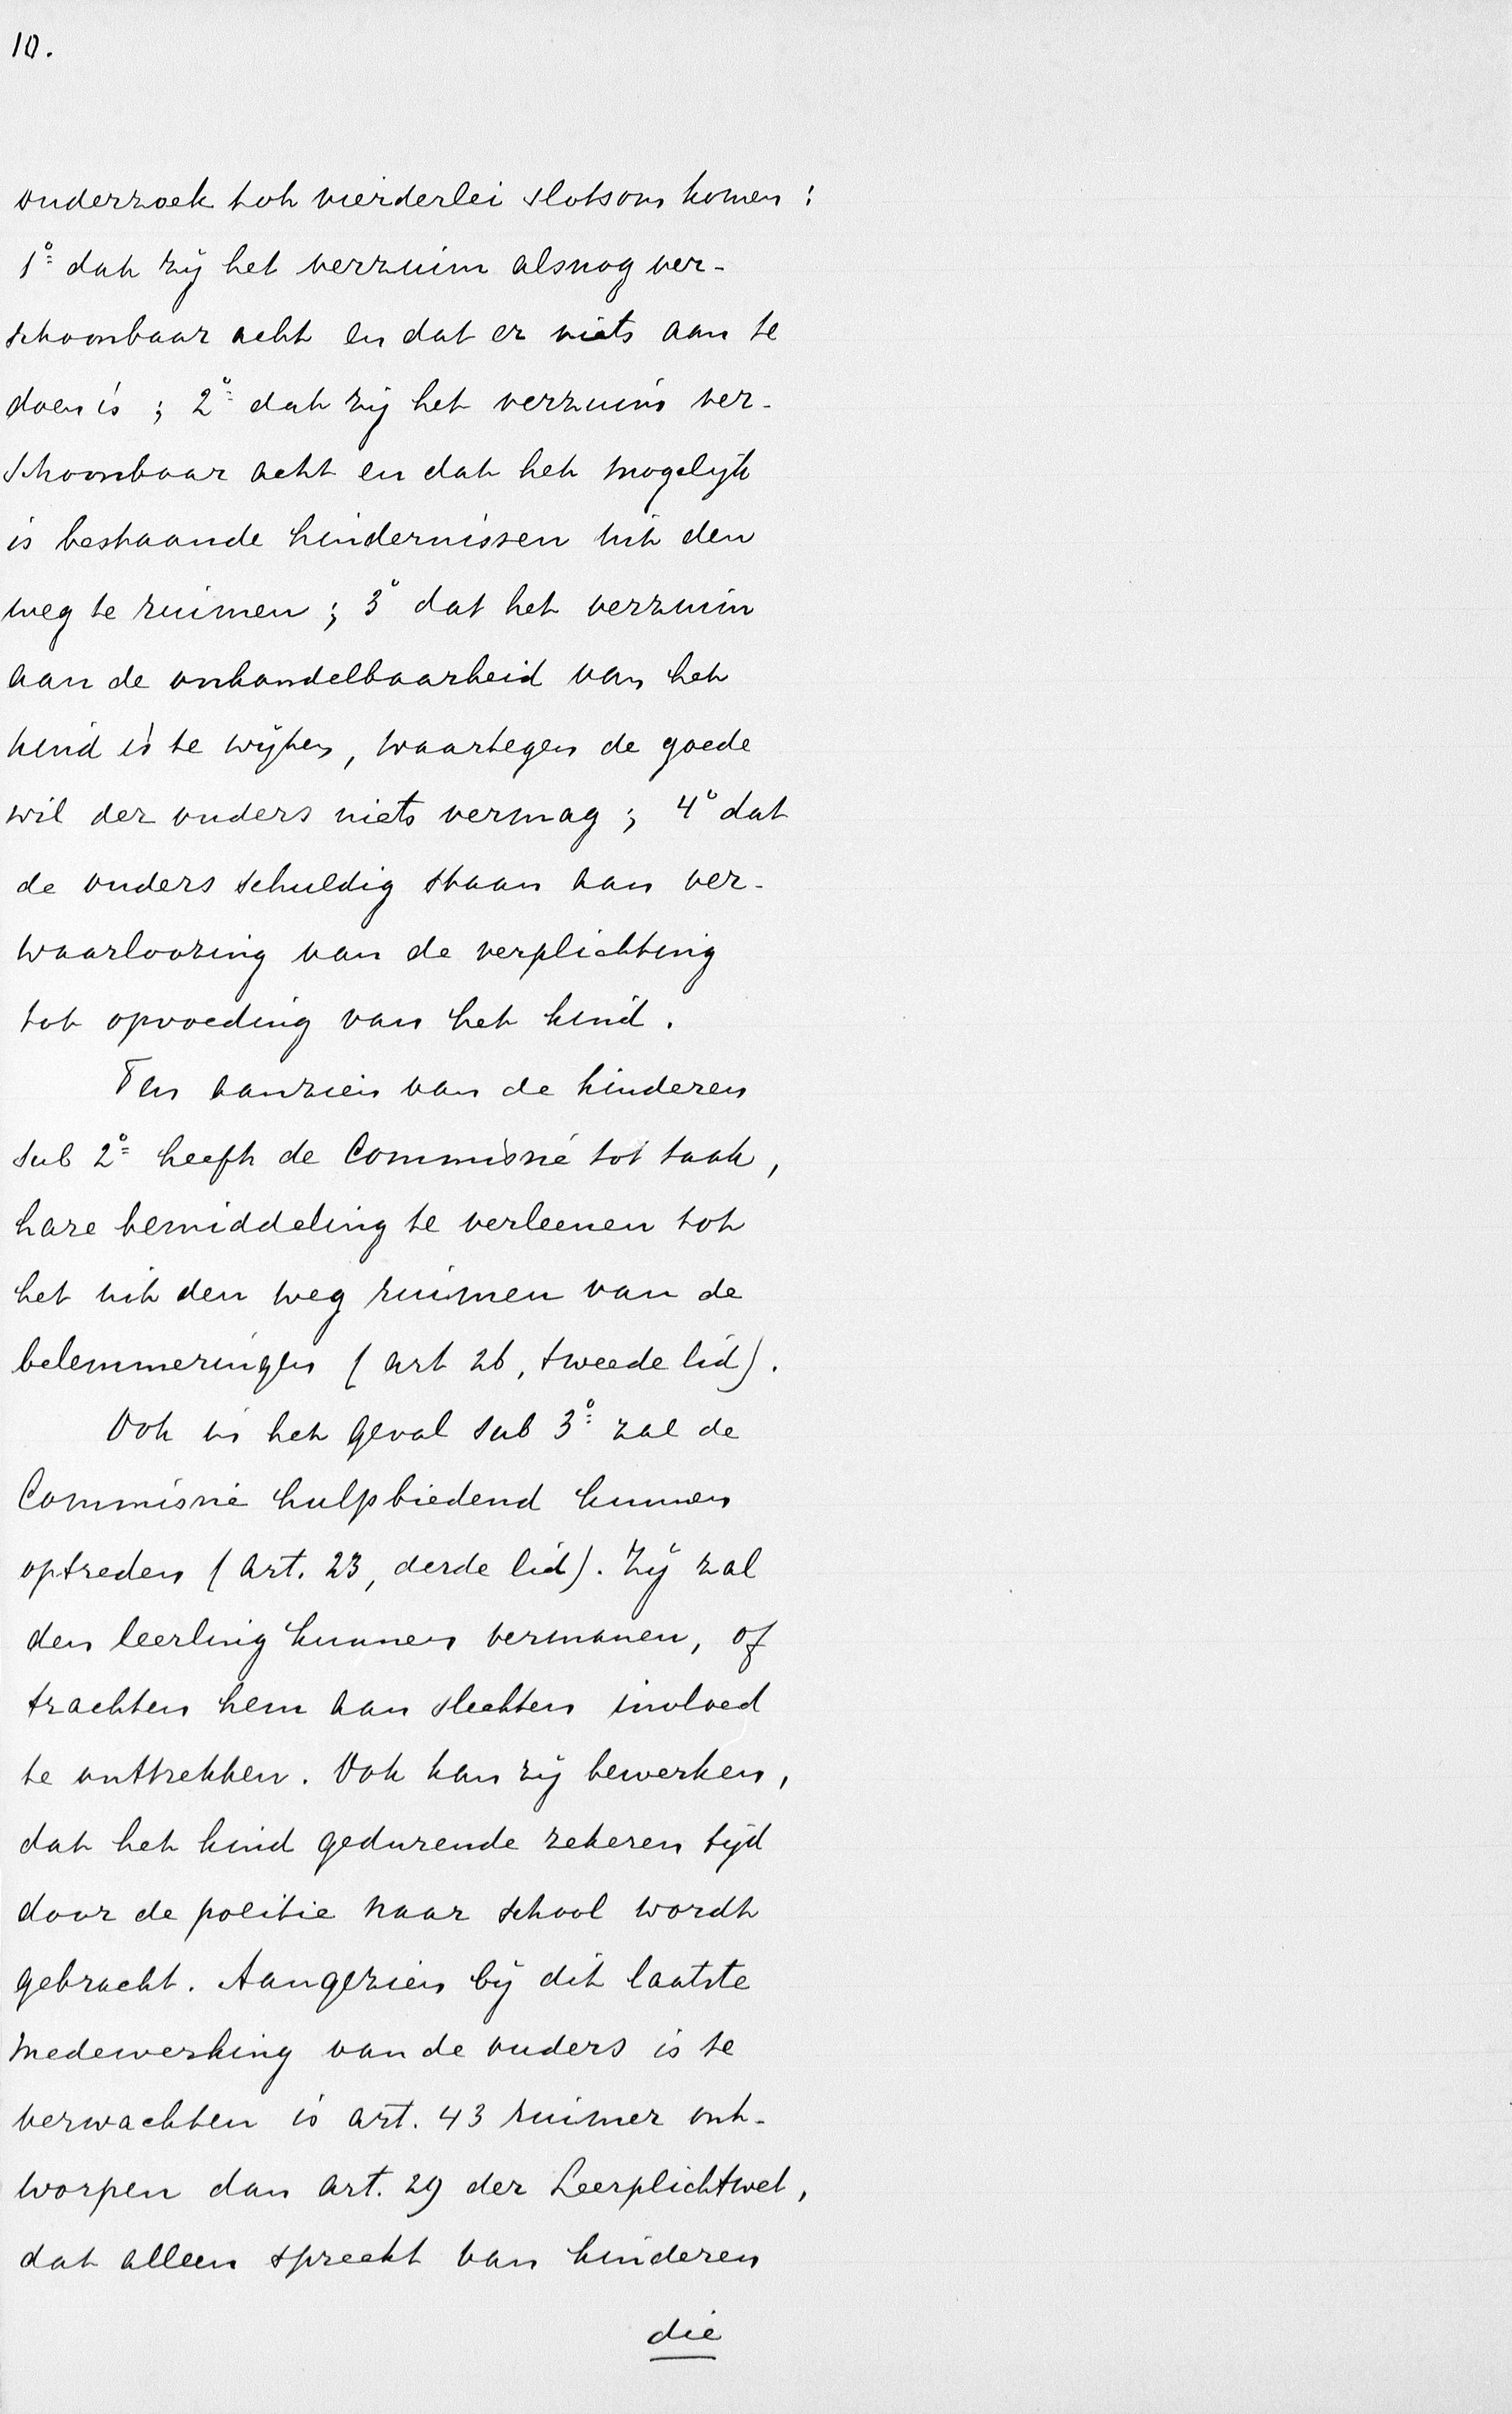 10.
onderzoek tot vierderlei slotsom komen:
1º dat zij het verzuim alsnog ver-
schoonbaar acht en dat er niets aan te
doen is; 2º dat zij het verzuim ver-
schoonbaar acht en dat het mogelijk
is bestaande hindernissen uit den
weg te ruimen; 3º dat het verzuim
aan de onhandelbaarheid van het
kind is te wijten, waartegen de goede
wil der ouders niets vermag; 4º dat
de ouders schuldig staan aan ver-
waarloozing van de verplichting
tot opvoeding van het kind.
Ten aanzien van de kinderen
sub 2º heeft de Commissie tot taak,
hare bemiddeling te verleenen tot
het uit den weg ruimen van de
belemmeringen (art 26, tweede lid).
Ook in het geval sub 3º zal de
Commissie hulpbiedend kunnen
optreden (art. 23, derde lid). Zij zal
den leerling kunnen vermanen, of
trachten hem aan slechten invloed
te onttrekken. Ook kan zij bewerken,
dat het kind gedurende zekeren tijd
door de politie naar school wordt
gebracht. Aangezien bij dit laatste
medewerking van de ouders is te
verwachten is art. 43 ruimer ont-
worpen dan art. 29 der Leerplichtwet,
dat alleen spreekt van kinderen
die